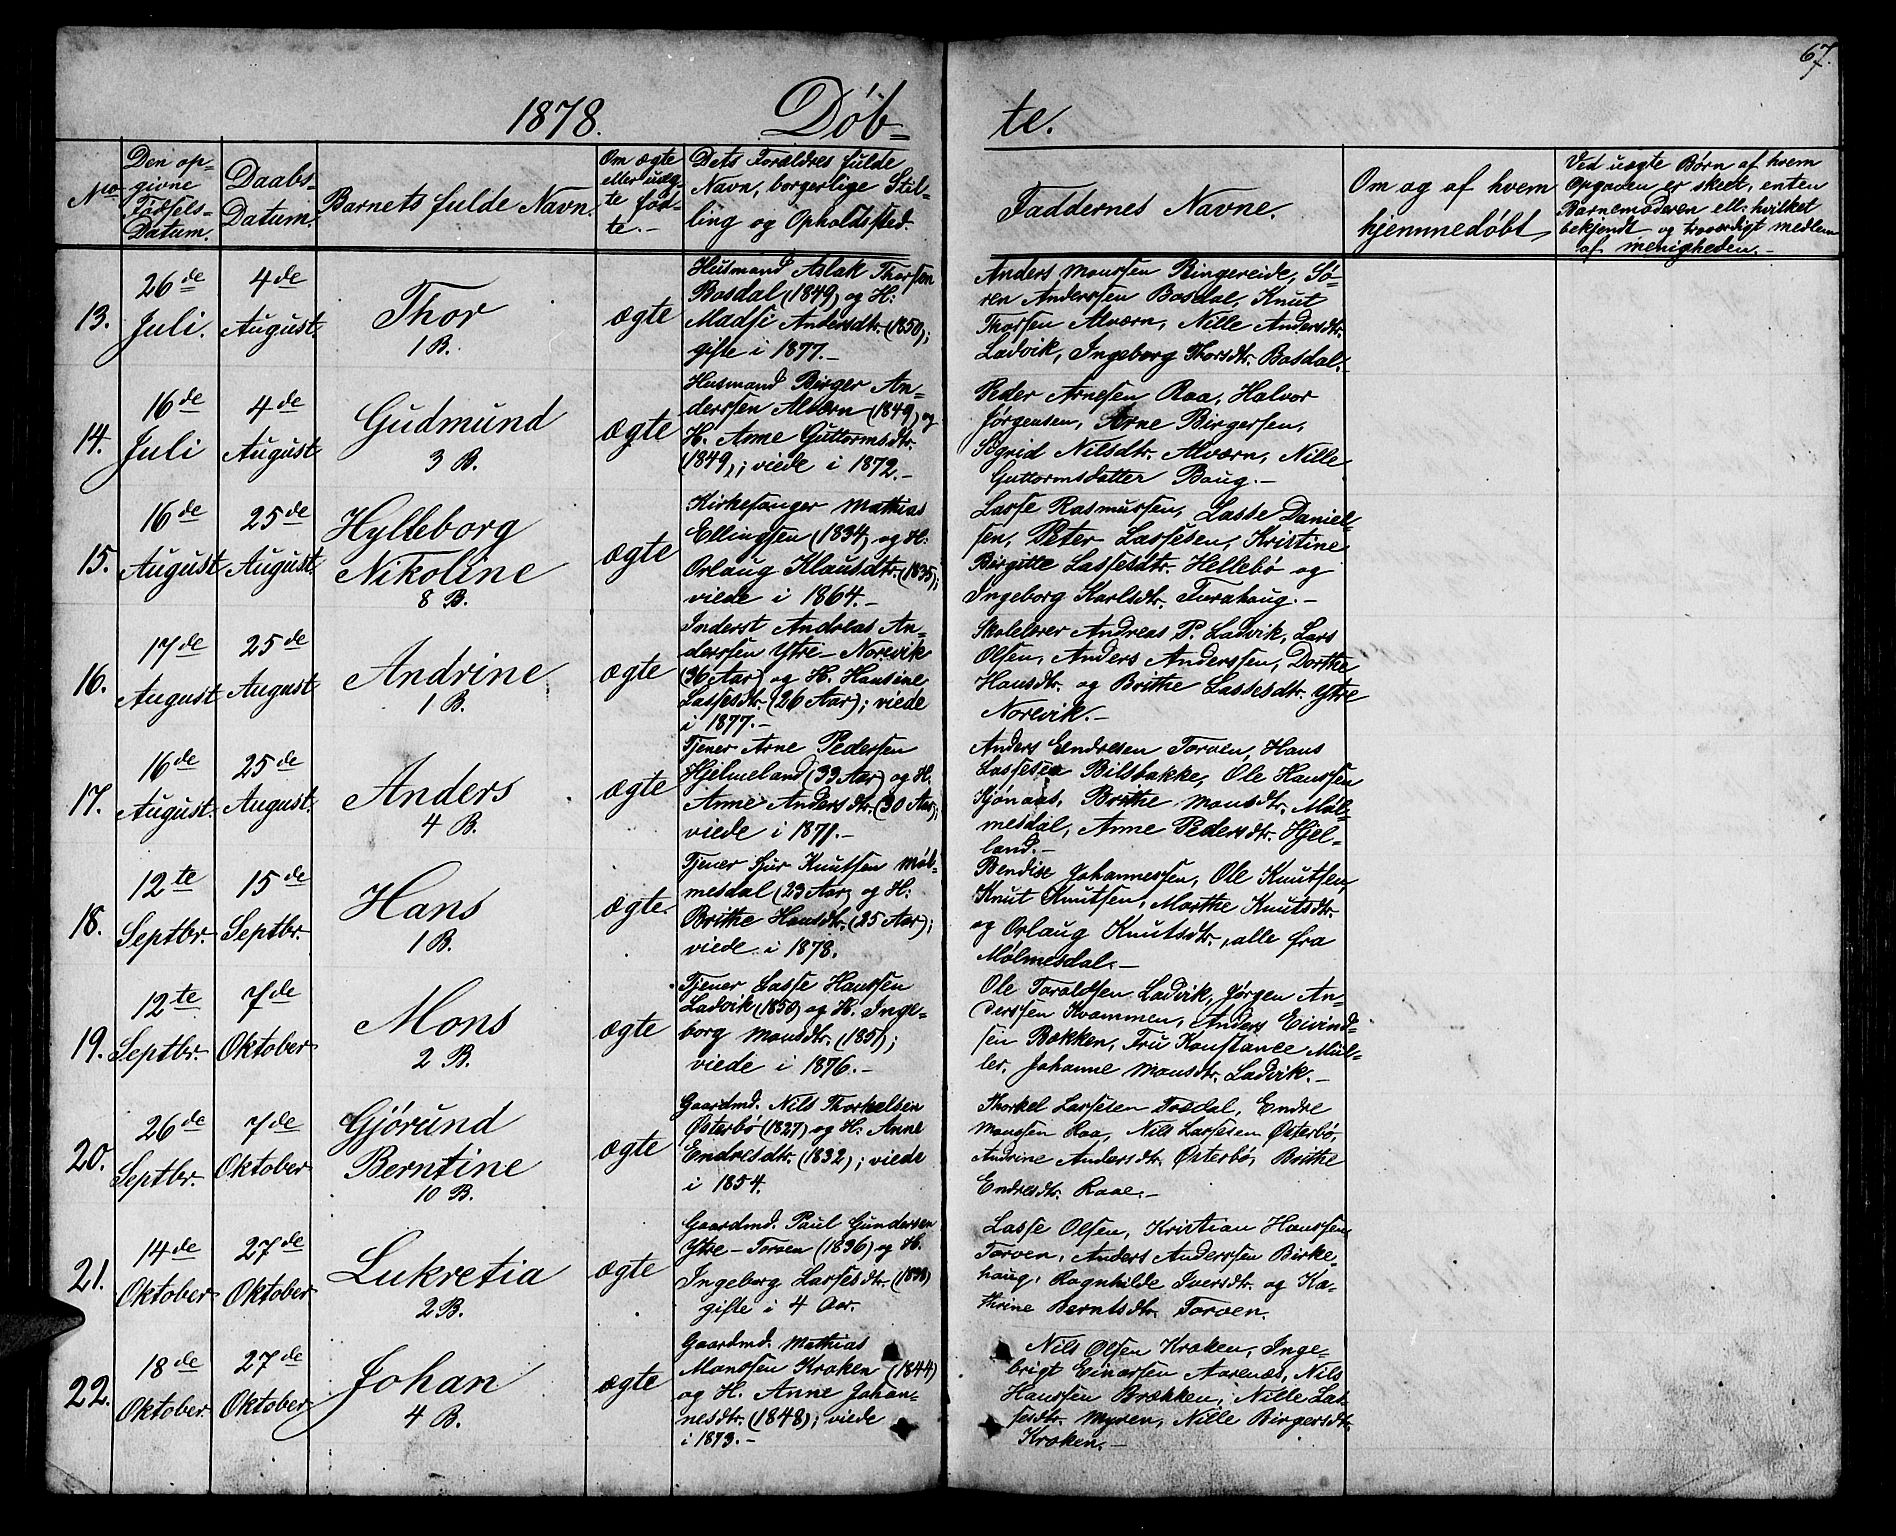 67.
1878. Døb= te.
No
Den op=
givne
Fødsels=
Datum.
Daabs=
Datum.
Barnets fulde Navn.
Om ægte
eller uæg=
te fød=
te.-
Dets Forældres fulde
Navn, borgerlige Stil=
ling og Opholdssted.
Faddernes Navne.
Om og af hvem
hjemmedøbt
Ved uægte Børn af hvem
Opgaven er skeet, enten
Barnemoderen ell: hvilket
bekjendt og troværdigt medlem
af menigheden.-
13.
26de
Juli.
4de
August.
Thor
1 B.
ægte
Husmand Aslak Thorsen
Bosdal (1849) og H:
Madsi Andersdtr. (1850);
gifte i 1877.-
Anders Monssen Ringereide, Sø=
ren Anderssen Bosdal, Knut
Thorsen Alværn, Nille Andersdtr.
Ladvik, Ingeborg Thorsdtr. Bosdal.
14.
16de
Juli
4de
August
Gudmund
3 B.
ægte
Husmand Birger An=
derssen Alværn (1849) og
H. Anne Guttormsdtr.
(1849); viede i 1872.-
Peder Arnesen Raa, Halvor
Jørgensen, Arne Birgersen,
Sigrid Nilsdtr. Alværn, Nille
Guttormsdatter Baug.-
15.
16de
August
25de
August.
Hylleborg
Nikoline
8 B.
ægte
Kirkesanger Mathias
Ellingsen (1834) og H:
Orlaug Klausdtr. (1835);
viede i 1864.-
Lasse Rasmussen, Lasse Daniel=
sen, Peter Lassesen, Kristine
Birgitte Lassesdtr. Hellebø og
Ingeborg Karlsdtr. Furahaug.-
16.
17de
August
25de
August
Andrine
1 B.
ægte
Inderst Andreas An=
derssen Ytre-Norevik
(36 Aar) og H. Hansine
Lassesdtr. (26 Aar); viede
i 1877.-
Skolelærer Andreas P. Ladvik, Lars
Olsen, Anders Anderssen, Dorthe
Hansdtr. og Brithe Lassesdtr. Ytre
Norevik.-
17.
16de
August.
25de
August.
Anders
4 B.
ægte
Tjener Arne Pedersen
Hjelmeland (33 Aar) og H.
Anne Andersdtr. (30 Aar);
viede i 1871.-
Anders Endresen Torven, Hans
Lassesen Bilsbakke, Ole Hanssen
Kjønaas, Brithe Monsdtr. Møl=
mesdal, Anne Pedersdtr. Hjel=
land.-
18.
12te
Septbr.
15de
Septbr.
Hans
1 B.
ægte.
Tjener Sjur Knutsen Møl=
mesdal (23 Aar) og H:
Brithe Hansdtr. (25 Aar);
viede i 1878.
Bendix Johannessen, Ole Knutsen,
Knut Knutsen, Marthe Knutsdtr.
og Orlaug Knutsdtr., alle fra
Mølmesdal.-
19.
12te
Septbr.
7de
Oktober
Mons
2 B.
ægte
Tjener Lasse Hanssen
Ladvik (1850) og H. Inge=
borg Monsdtr. (1851);
viede i 1876.-
Ole Toraldsen Ladvik, Jørgen An=
derssen Kvammen, Anders Eivind=
sen Bakken, Fru Konstance Mül=
ler, Johanne Monsdtr. Ladvik.-
20.
26de
Septbr.
7de
Oktober
Gjørund
Berntine
10 B.
ægte
Gaardmd. Nils Thorkelsen
Østerbø (1827) og H: Anne
Endresdtr. (1832); viede
i 1854.
Thorkel Lassesen Tosdal, Endre
Monssen Raa, Nils Lassesen Østerbø,
Andrine Andersdtr. Østerbø, Brithe
Endresdtr. Raae.-
21.
14de
Oktober
27de
Oktober
Lukretia
2 B.
ægte
Gaardmd. Paul Gundersen
Ytre-Torven (1836) og H.
Ingeborg Lassesdtr.
gifte i 4 Aar.
Lasse Olsen, Kristian Hanssen
Torven, Anders Anderssen Birke=
haug, Ragnhilde Iversdtr. og Ka=
thrine Berntsdtr. Torven.
22.
18de
Oktober.
27de
Oktober
Johan
4 B.
ægte
Gaardmd. Mathias
Monssen Kraken (1844)
og H. Anne Johan=
nesdtr. (1848); viede
i 1873.-
Nils Olsen Kraken, Inge=
brigt Einarsen Aarenæs, Nils
Hanssen Brækken, Nille Las=
sesdtr. Myren, Nille Birgersdtr.
Kraken.-